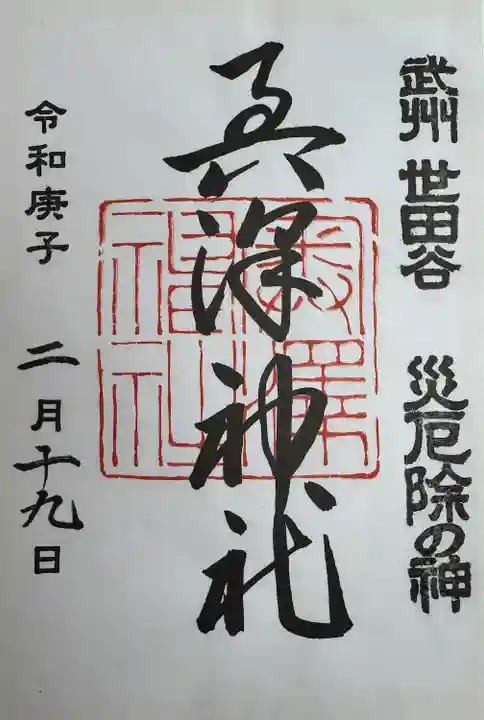 武州 世田谷 災厄除の神
奥澤神社
奥澤神社
令和庚子 二月十九日